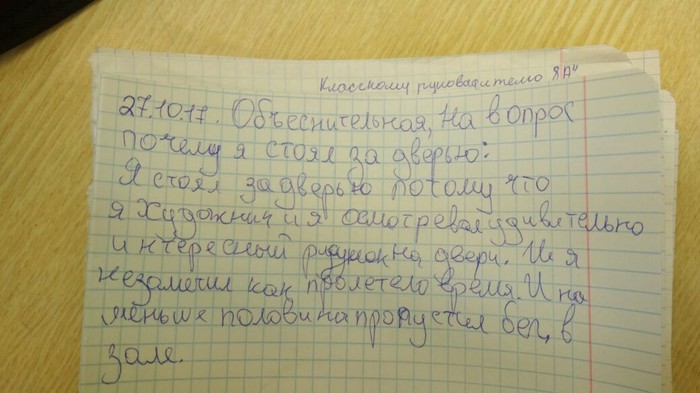 Классному руководителю 8 "А"
27.10.17. Объеснительная, на вопрос
почему я стоял за дверью:
Я стоял за дверью потому что
я художник и я осмотревал удивительно
интересный рисунок на двери. И я
незаметил как пролетело время. И на
меньше половина пропустил бег, в
зале.